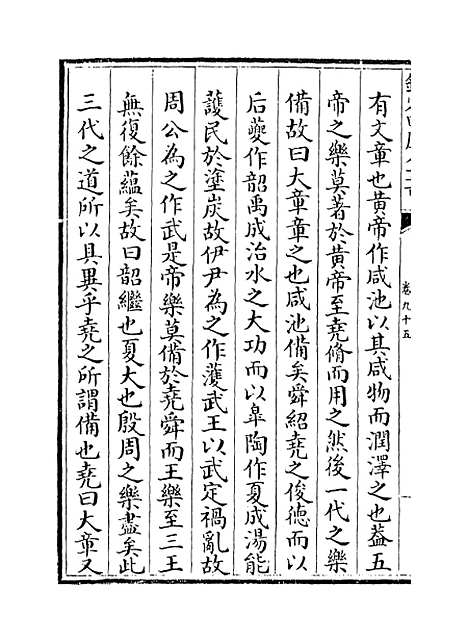 欽定四庫全書
卷九十五
有文章也黃帝作咸池以其咸物而潤澤之也蓋五
帝之樂莫著於黃帝至堯脩而用之然後一代之樂
備故曰大章章之也咸池備矣舜紹堯之俊德而以
后夔作韶禹成治水之大功而以皐陶作夏成湯能
護民於塗炭故伊尹為之作濩武王以武定禍亂故
周公為之作武是帝樂莫備於堯舜而王樂至三王
無復餘蘊矣故曰韶繼也夏大也殷周之樂盡矣此
三代之道所以具異乎堯之所謂備也堯曰大章又